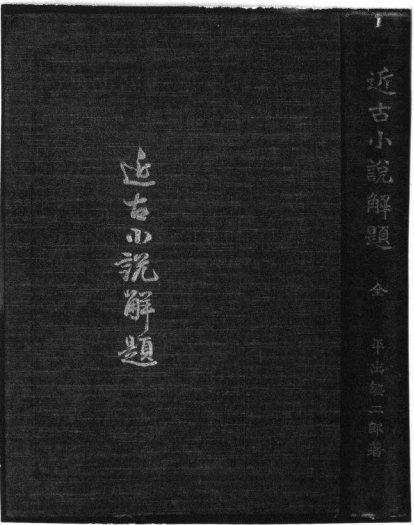 近古小説解題
近古小説解題 全 平出鏗二郎著